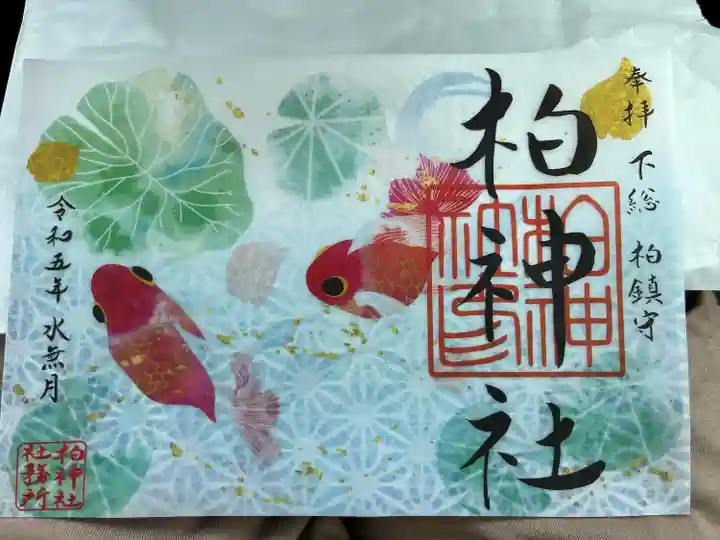 奉拝 下総 柏鎮守
柏神社
柏神社印
令和五年 水無月
柏神社
社務所